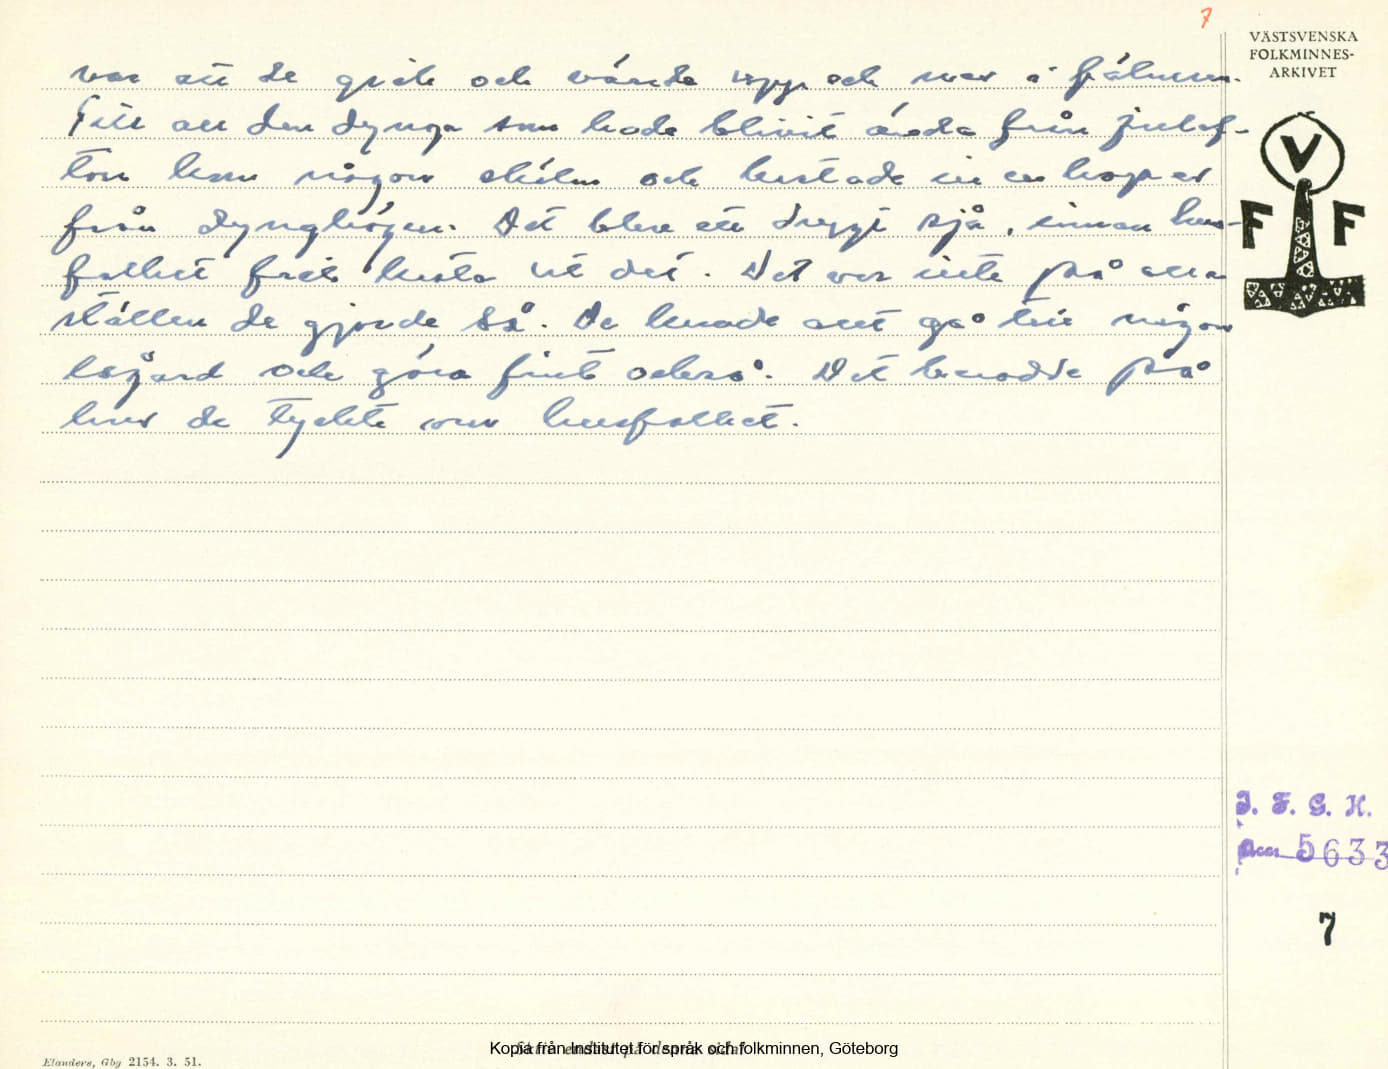 7
VÄSTSVENSKA
FOLKMINNES-
ARKIVET
V
F F
var att de gick och vände upp och ner i hålmen.
Till all den dynga som hade blivit ända från julaf-
ton kom någon skälm och kastade in en hop av
från dynghögen. Det blev ett drygt sjå, innan hus-
folket fick kasta ut det. Det var inte på alla
ställen de gjorde så. De kunade allt gå till någon
lsgård och göra fint också. Det berodde på
hur de tyckte om husfolket.
I. F. G. H.
Acc 5633
7
Elanders, Gbg 2154. 3. 51.
Kopia från Institutet för språk och folkminnen, Göteborg